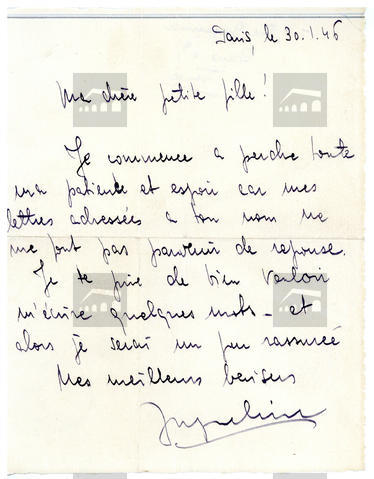 Paris, le 30.1.46
Ma chère petite fille!
Je commence a perdre toute
ma patience et espoir car mes
lettres adressées a ton nom ne
me font pas parvenir de reponse.
Je te prie de bien vouloir
m'écrire quelques mots - et
alors je serai un peu rassurée
Mes meilleurs baisers
Jacqueline